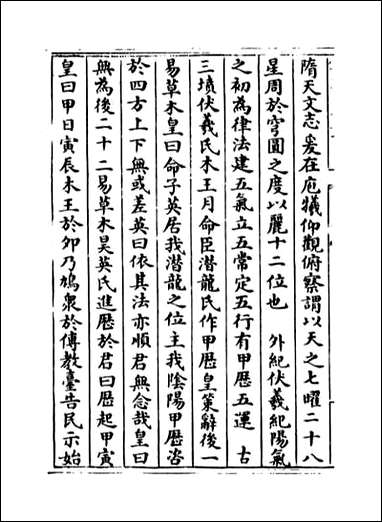 隋天文志爰在庖犧仰觀俯察謂以天之七曜二十八
星周於穹圓之度以麗十二位也　外紀伏羲紀陽氣
之初為律法建五氣立五常定五行有甲歴五運　古
三墳伏羲氏木王月命臣潜龍氏作甲歴皇策辭後一
易草木皇曰命子英居我潜龍之位主我陰陽甲歴咨
於四方上下無或差英曰依其法亦順君無念哉皇曰
無為後二十二易草木昊英氏進歴於君曰歴起甲寅
皇曰甲日寅辰木王於夘乃鳩衆於傳教臺告民示始